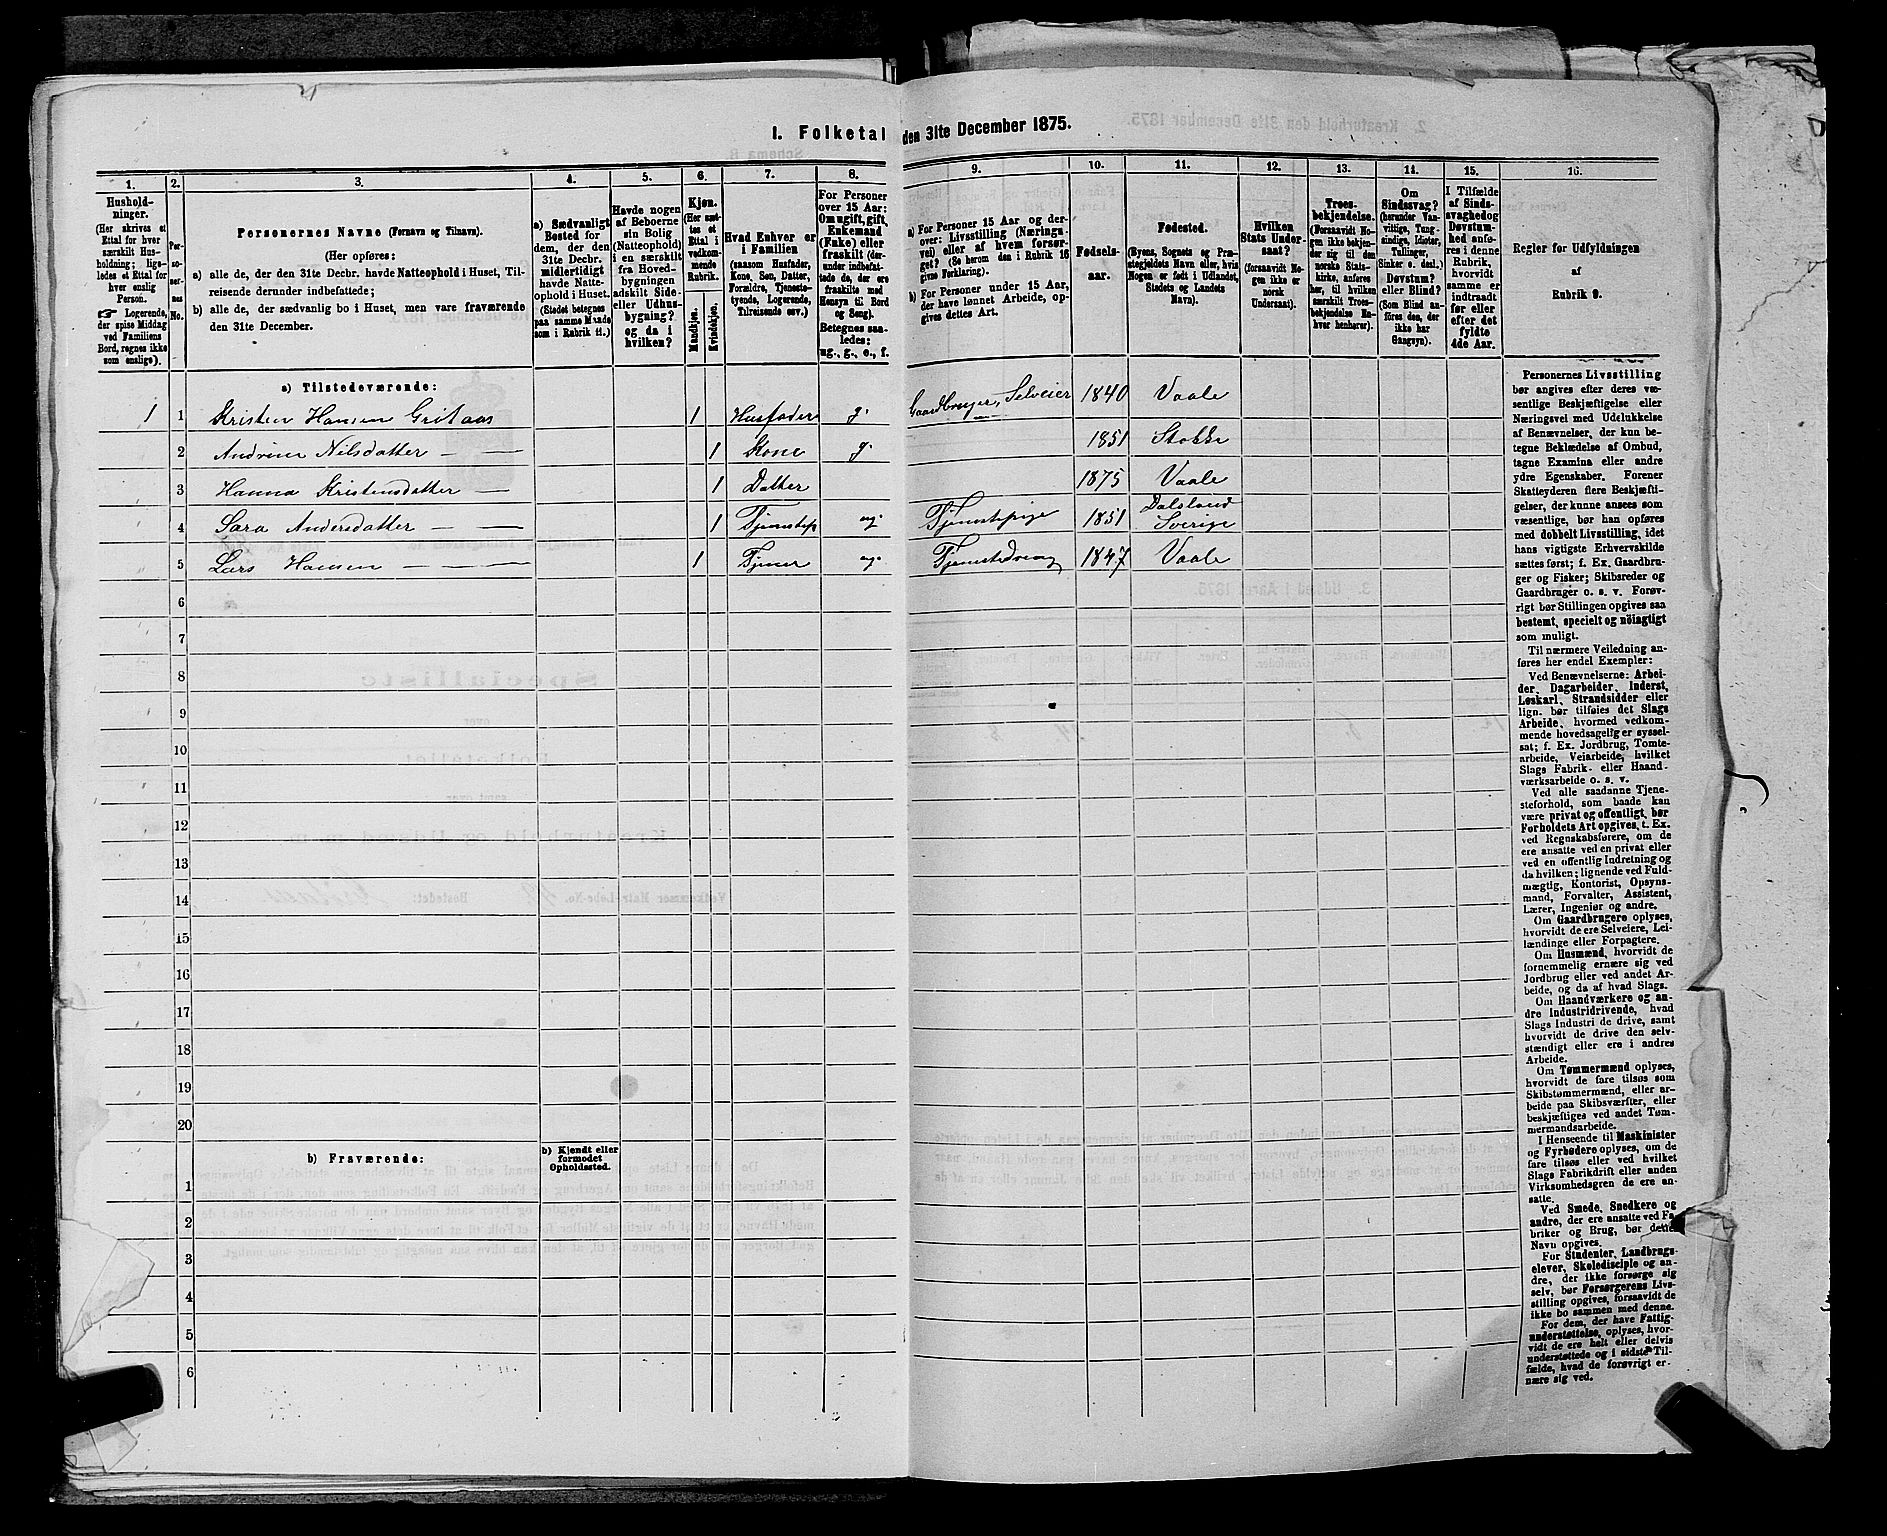 1. Folketal den 31te December 1875.
1. 2. 3. 4. 5. 6. 7. 8. 9. 10. 11. 12. 13. 14. 15. 16.
Hushold-
ninger.
(Her skrives et
Ettal for hver
særskilt Hus-
holdning; lige-
ledes et Ettal for
hver enslig
Person.
☞ Logerende,
der spise Middag
ved Familiens
Bord, regnes ikke
som enslige).
Per-
so-
ner-
nes
No.
Personernes Navne (Fornavn og Tilnavn).
(Her opføres:
a) alle de, der den 31te Decbr. havde Natteophold i Huset, Til-
reisende derunder indbefattede;
b) alle de, der sædvanlig bo i Huset, men vare fraværende
den 31te December.
a) Sædvanligt
Bosted for
dem, der den
31te Decbr.
midlertidigt
havde Natte-
ophold i Huset.
(Stedet betegnes
paa samme Maade
som i Rubrik 11.)
Havde nogen
af Beboerne
sin Bolig
(Natteophold)
i en særskilt
fra Hoved-
bygningen
adskilt Side-
eller Udhus-
bygning?
og da i
hvilken?
Kjøn.
(Her sæt-
tes et
Ettal i
vedkom-
mende
Rubrik.
Mandkjøn.
Kvindekjøn.
Hvad Enhver er
i Familien
(saasom Husfader,
Kone, Søn, Datter,
Forældre, Tjeneste-
tyende, Logerende,
Tilreisende osv.)
For Personer
over 15 Aar:
Om ugift, gift,
Enkemand
(Enke) eller
fraskilt (der-
under indbefat-
tede de, der ere
fraskilte med
Hensyn til Bord
og Seng).
Betegnes saa-
ledes:
ug., g., e., f.
a) For Personer 15 Aar og der-
over: Livsstilling (Nærings-
vei) eller af hvem forsør-
get? (Se herom den i Rubrik 16
givne Forklaring).
b) For Personer under 15 Aar,
der have lønnet Arbeide, op-
gives dettes Art.
Fødsels-
aar.
Fødested.
(Byens, Sognets og Præ-
stegjeldets Navn eller, hvis
Nogen er født i Udlandet,
Stedets og Landets
Navn).
Hvilken
Stats Under-
saat?
(forsaavidt No-
gen ikke er
norsk
Undersaat).
Troes-
bekjendelse.
(Forsaavidt No-
gen ikke bekjen-
der sig til den
norske Stats-
kirke, anføres
her, til hvilken
særskilt Troes-
bekjendelse En-
hver henhører).
Om
Sindssvag?
(herunder Van-
vittige, Tung-
sindige, Idioter,
Tullinger,
Sinker o. desl.)
Døvstum?
eller Blind?
(Som Blind an-
føres den, der
ikke har
Gangsyn).
I Tilfælde
af Sinds-
svaghed og
Døvstum-
hed anfø-
res i denne
Rubrik,
hvorvidt
samme er
indtraadt
før eller
efter det
fyldte
4de Aar.
Regler for Udfyldningen
af
Rubrik 9.
a) Tilstedeværende:
1 1 Kristen Hansen Gritaas 1 Husfader g. Gaardbruger, Selveier 1840 Vaale
2 Andrine Nilsdatter — — 1 Kone g. 1851 Stokke
3 Hanna Kristensdatter — 1 Datter 1875 Vaale
4 Sara Andersdatter — — 1 Tjenestep ug. Tjenestepige 1851 Dalsland
Sverige
5 Lars Hansen — — — 1 Tjener ug. Tjenestedreng 1847 Vaale
6
7
8
9
10
11
12
13
14
15
16
17
18
19
20
b) Fraværende:
b) Kjendt eller
formodet
Opholdssted.
1
2
3
4
5
6
Personernes Livsstilling
bør angives efter deres væ-
sentlige Beskjæftigelse eller
Næringsvei med Udelukkelse
af Benævnelser, der kun be-
tegne Beklædelse af Ombud,
tagne Examina eller andre
ydre Egenskaber. Forener
Skatteyderen flere Beskjæfti-
gelser, der kunne ansees som
væsentlige, bør han opføres
med dobbelt Livsstilling, idet
hans vigtigste Erhvervskilde
sættes først; f. Ex. Gaardbru-
ger og Fisker; Skibsreder og
Gaardbruger o. s. v. Forøv-
rigt bør Stillingen opgives saa
bestemt, specielt og nöiagtigt
som muligt.
Til nærmere Veiledning an-
føres her endel Exempler:
Ved Benævnelserne: Arbei-
der, Dagarbeider, Inderst,
Løskarl, Strandsidder eller
lign. bør tilføies det Slags
Arbeide, hvormed vedkom-
mende hovedsagelig er syssel-
sat; f. Ex. Jordbrug, Tomte-
arbeide, Veiarbeide, hvilket
Slags Fabrik- eller Haand-
værksarbeide o. s. v.
Ved alle saadanne Tjene-
steforhold, som baade kan
være privat og offentligt, bør
Forholdets Art opgives, t. Ex.
ved Regnskabsførere, om de
ere ansatte ved en privat eller
ved en offentlig Indretning og
da hvilken; lignende ved Fuld-
mægtig, Kontorist, Opsyns-
mand, Forvalter, Assistent,
Lærer, Ingeniør og andre.
Om Gaardbrugere oplyses,
hvorvidt de ere Selveiere, Lei-
lændinge eller Forpagtere.
Om Husmænd, hvorvidt de
fornemmelig ernære sig ved
Jordbrug eller ved andet Ar-
beide, og da af hvad Slags.
Om Haandværkere og an-
dre Industridrivende, hvad
Slags Industri de drive, samt
hvorvidt de drive den selv-
stændigt eller ere i andres
Arbeide.
Om Tømmermænd oplyses,
hvorvidt de fare tilsøs som
Skibstømmermænd, eller ar-
beide paa Skibsværfter, eller
beskjæftiges ved andet Tøm-
mermandsarbeide.
I Henseende til Maskinister
og Fyrbødere oplyses, om de
fare tilsøs eller ved hvilket
Slags Fabrikdrift eller anden
Virksomhedsgren de ere an-
satte.
Ved Smede, Snedkere og
andre, der ere ansatte ved Fa-
briker og Brug, bør dette
Navn opgives.
For Studenter, Landbrugs-
elever, Skoledisciple og an-
dre, der ikke forsørge sig
selv, bør Forsørgerens Livs-
stilling opgives, forsaavidt de
ikke bo sammen med denne.
For dem, der have Fattig-
understøttelse, oplyses, hvor-
vidt de ere helt eller delvis
understøttede og i sidste Til-
fælde, hvad de forøvrigt er-
nære sig ved.